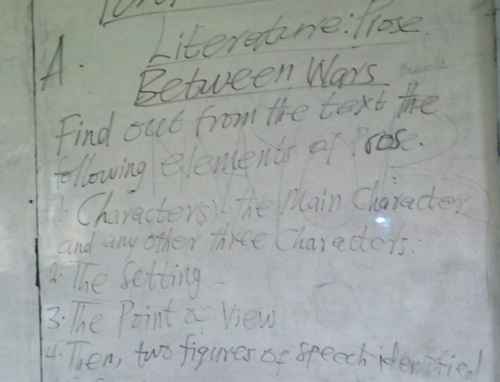 A.
Literature: Prose.
Between Wars
Find out from the text the
following elements of Prose.
1. Character(s): The Main Character
and any other three Characters:
2. The Setting
3. The Point of View
4. Then, two figures of speech identified